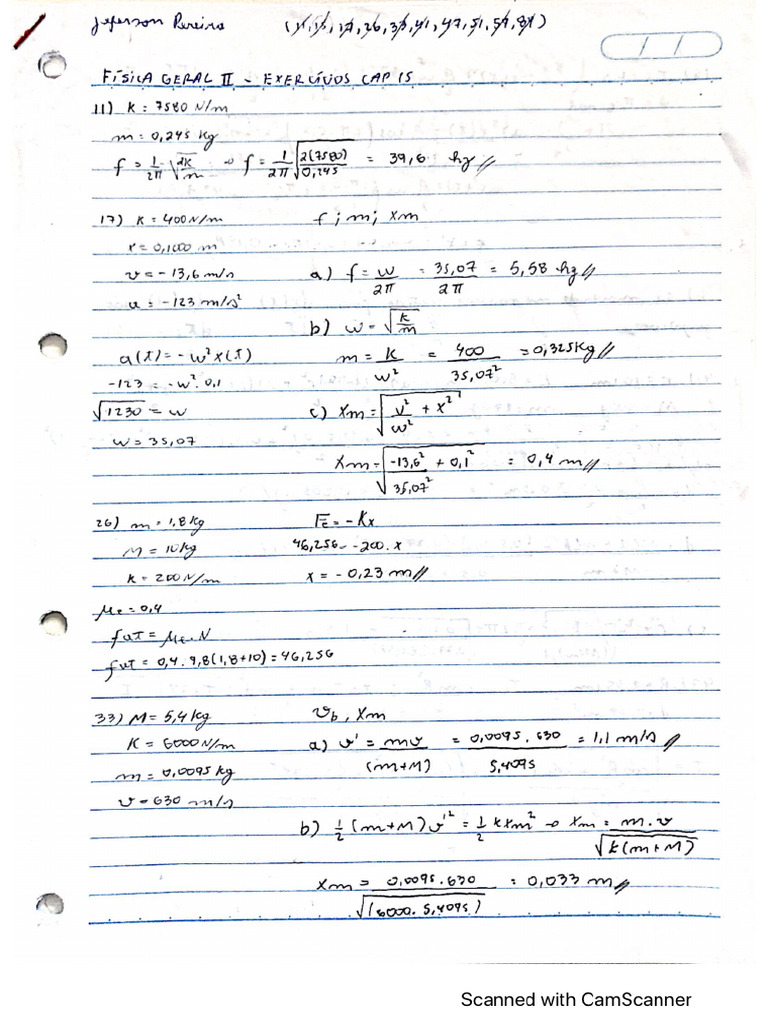 Jeferson Pereira (11, 17, 26, 33, 41, 47, 51, 57, 81)
FÍSICA GERAL II - EXERCÍCIOS CAP 15
11) K = 7580 N/m
m = 0,245 kg
f = 1/2π √(2k/m) ⇒ f = 1/2π √(2(7580)/0,245) = 39,6 hz //
17) K = 400 N/m f; m; xm
x = 0,1000 m
v = -13,6 m/s a) f = w/2π = 35,07/2π = 5,58 hz //
a = -123 m/s²
b) w = √(k/m)
a(t) = -w² x(t) m = k/w² = 400/35,07² = 0,325 kg //
-123 = -w². 0,1
√1230 = w c) Xm = √(v²/w² + x²)
w = 35,07
Xm = √(-13,6²/35,07² + 0,1²) = 0,4 m //
26) m = 1,8 kg Fe = -Kx
M = 10 kg 46,256 = -200. x
K = 200 N/m x = -0,23 m //
μe = 0,4
fat = μe. N
fat = 0,4. 9,8(1,8+10) = 46,256
33) M = 5,4 kg vb, xm
K = 6000 N/m a) v' = mv/(m+M) = 0,0095. 630/5,4095 = 1,1 m/s //
m = 0,0095 kg
v = 630 m/s
b) 1/2 (m+M) v'² = 1/2 k xm² ⇒ xm = m. v/√(k(m+M))
Xm = 0,0095. 630/√(6000. 5,4095) = 0,033 m //
Scanned with CamScanner